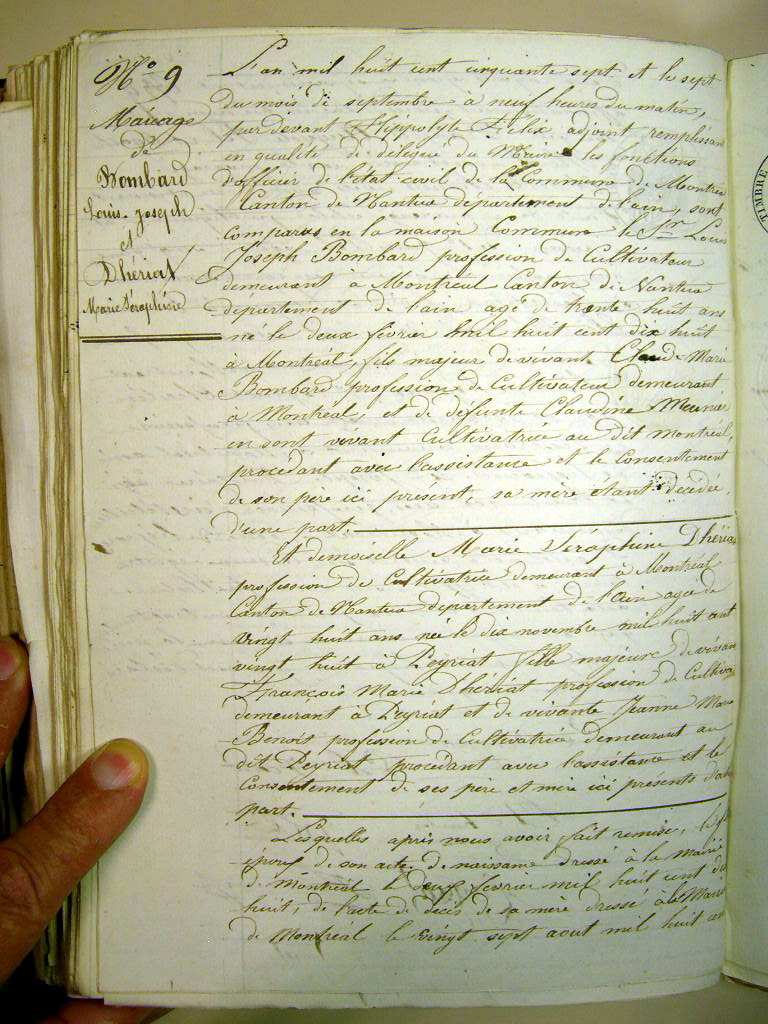 N° 9
Mariage
de
Bombard
Louis Joseph
et
Dhériat
Marie Séraphine
L'an mil huit cent cinquante sept et le sept
du mois de septembre à neuf heures du matin,
par devant Hippolyte Félix adjoint remplissant
en qualité de délégué du Maire les fonctions
d'officier de l'état civil de la Commune de Montréal
Canton de Nantua département de l'ain, sont
comparus en la maison commune le Sr Louis
Joseph Bombard profession de Cultivateur
demeurant à Montréal Canton de Nantua
département de l'ain agé de trente huit ans
né le deux février mil huit cent dix huit
à Montréal, fils majeur de vivant Claude Marie
Bombard profession de Cultivateur demeurant
à Montréal, et de défunte Claudine Meunier
en sont vivant Cultivatrice au dit Montréal,
procédant avec l'assistance et le Consentement
de son père ici présent, sa mère étant décédée,
d'une part.
Et demoiselle Marie Séraphine Dhériat
profession de Cultivatrice demeurant à Montréal
Canton de Nantua département de l'ain agée de
vingt huit ans née le dix novembre mil huit cent
vingt huit à Peyriat fille majeure de vivant
François Marie Dhériat profession de Cultiva
demeurant à Peyriat et de vivante Jeanne Marie
Benoit profession de Cultivatrice demeurant au
dit Peyriat procédant avec l'assistance et le
Consentement de ses père et mère ici présents d'autre
part.
Lesquelles après nous avoir fait remise,
époux de son acte de naissance dressé à la Mairie
de Montréal le deux février mil huit cent dix
huit, de l'acte de décès de sa mère dressé à la Mairie
de Montréal le vingt sept aout mil huit cent
TIMBRE